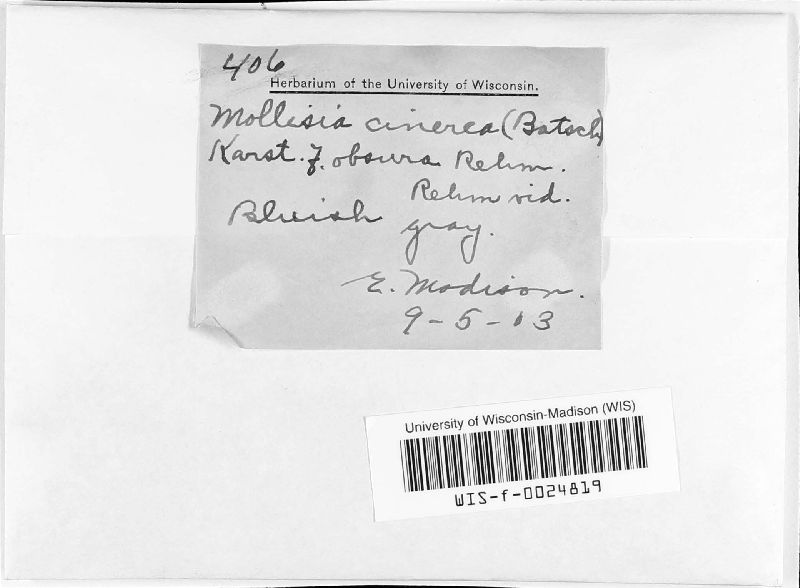 406
Herbarium of the University of Wisconsin.
Mollisia cinerea (Batsch)
Karst. f. obscura Rehm.
Rehm vid.
Bluish gray.
E. Madison.
9-5-03
University of Wisconsin-Madison (WIS)
WIS-f-0024819